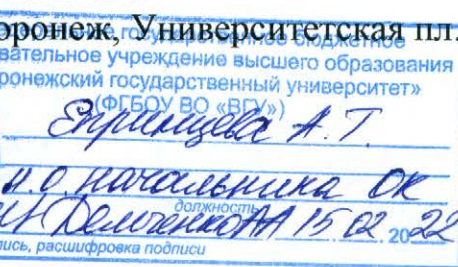 оронеж, Университетская пл.
государственное бюджетное
вательное учреждение высшего образования
ронежский государственный университет»
(ФГБОУ ВО «ВГУ»)
А. Т.
и.о. начальника ОК
должность
15 02 2022
пись, расшифровка подписи